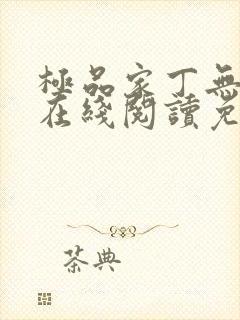 極品家丁無
在綫閱讀免
茶典